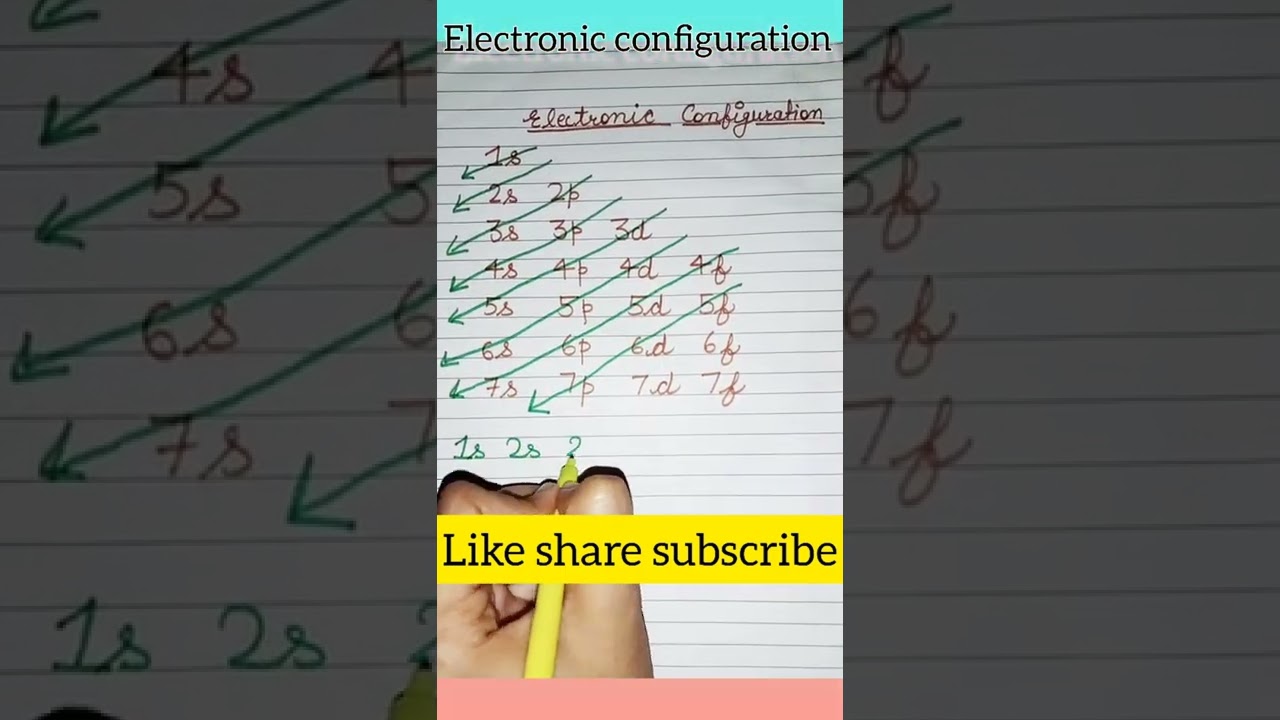 Electronic configuration
Electronic Configuration
1s
2s 2p
3s 3p 3d
4s 4p 4d 4f
5s 5p 5d 5f
6s 6p 6d 6f
7s 7p 7d 7f
1s 2s 2
Like share subscribe